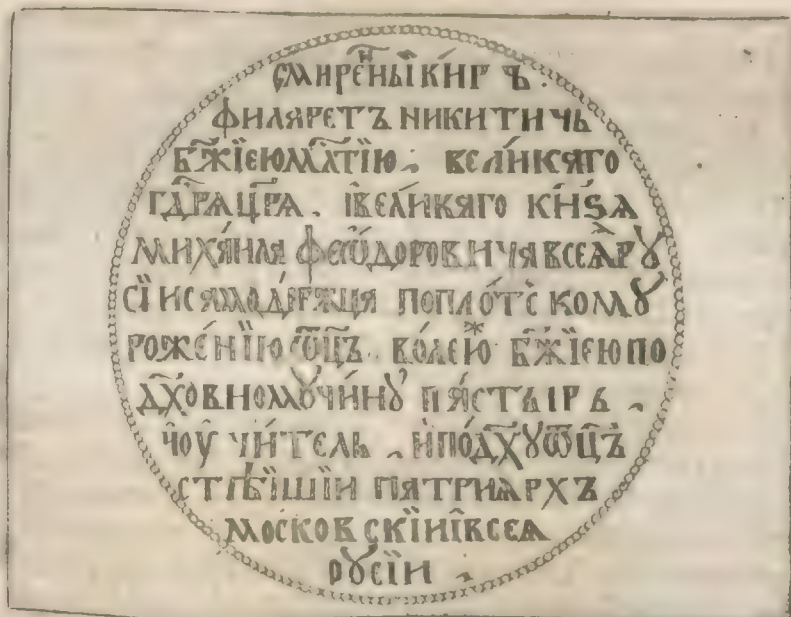 смире́ны́ки́ръ
филаретъ никитичь
бж҃їеюмл҃тїю . вели́каго
гд҃рацр҃а . івели́каго кн҃ѕа
миха́ила феѡ́доровичавсеѧ̀рꙋ
сїисамоде́ржца попло́тскомꙋ
роже́нїюѿц҃ъ . во́леїю бж҃їеюпо
дх҃о́вномꙋчи́нꙋ па́стырь .
иоу҆чи́тель . и҆подх҃ꙋѿц҃ъ
ст҃ѣ́йшїи патриархъ
московскїиївсеа
рꙋсїи .